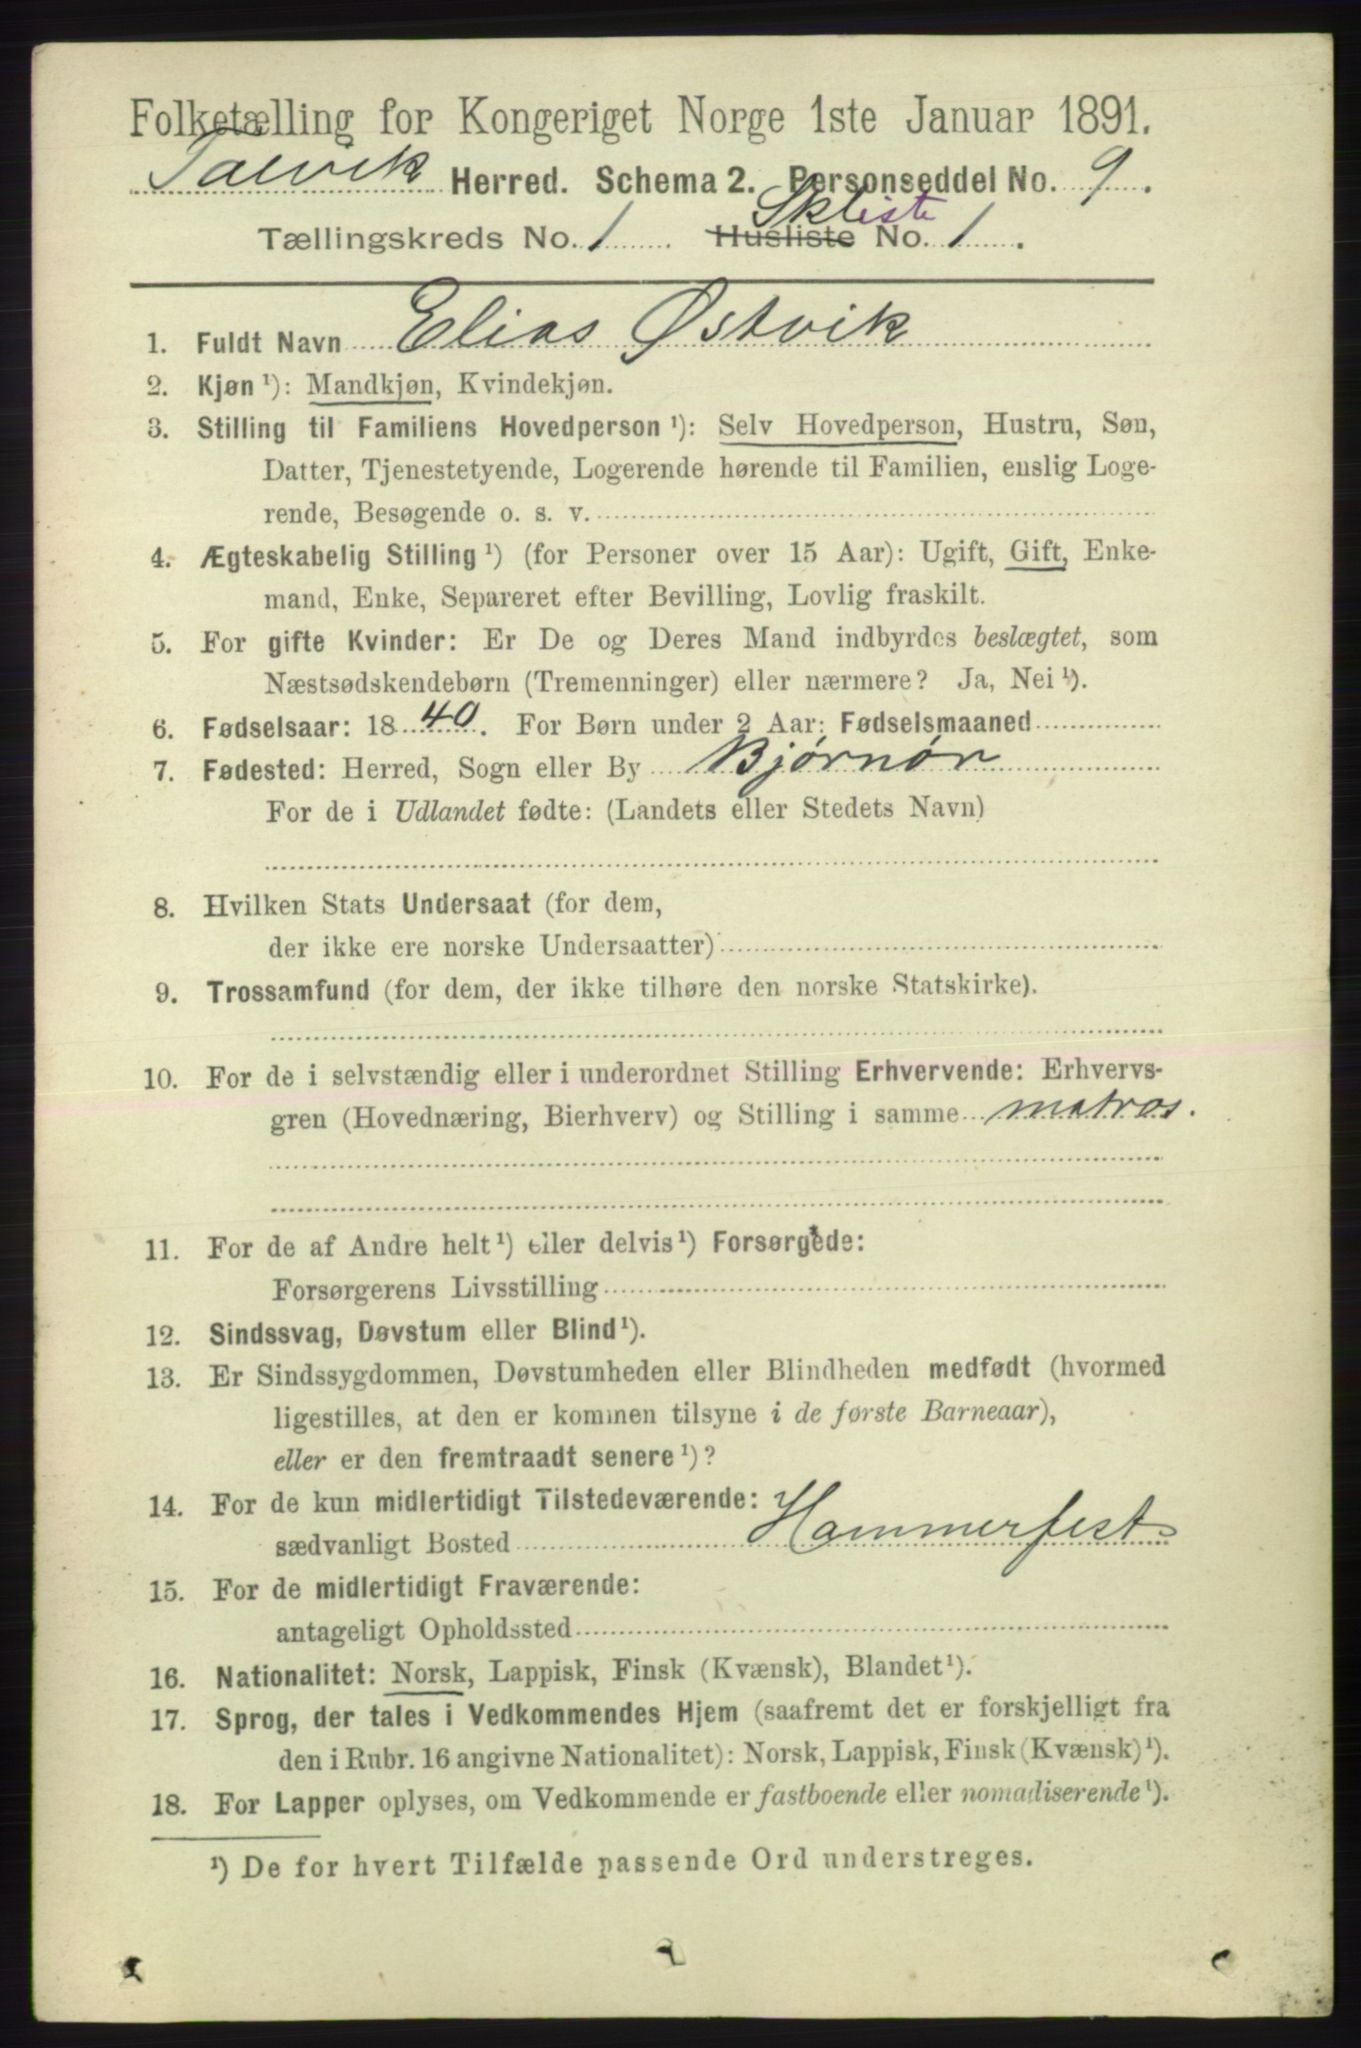 Folketælling for Kongeriget Norge 1ste Januar 1891.
Talvik Herred. Schema 2. Personseddel No. 9.
Skliste
Tællingskreds No. 1 Husliste No. 1.
1. Fuldt Navn Elias Østvik
2. Kjøn ¹): Mandkjøn, Kvindekjøn.
3. Stilling til Familiens Hovedperson ¹): Selv Hovedperson, Hustru, Søn,
Datter, Tjenestetyende, Logerende hørende til Familien, enslig Loge-
rende, Besøgende o. s. v.
4. Ægteskabelig Stilling ¹) (for Personer over 15 Aar): Ugift, Gift, Enke-
mand, Enke, Separeret efter Bevilling, Lovlig fraskilt.
5. For gifte Kvinder: Er De og Deres Mand indbyrdes beslægtet, som
Næstsødskendebørn (Tremenninger) eller nærmere? Ja, Nei ¹).
6. Fødselsaar: 1840. For Børn under 2 Aar: Fødselsmaaned
7. Fødested: Herred, Sogn eller By Bjørnør
For de i Udlandet fødte: (Landets eller Stedets Navn)
8. Hvilken Stats Undersaat (for dem,
der ikke ere norske Undersaatter)
9. Trossamfund (for dem, der ikke tilhøre den norske Statskirke).
10. For de i selvstændig eller i underordnet Stilling Erhvervende: Erhvervs-
gren (Hovednæring, Bierhverv) og Stilling i samme matros.
11. For de af Andre helt ¹) eller delvis ¹) Forsørgede:
Forsørgerens Livsstilling
12. Sindssvag, Døvstum eller Blind ¹).
13. Er Sindssygdommen, Døvstumheden eller Blindheden medfødt (hvormed
ligestilles, at den er kommen tilsyne i de første Barneaar),
eller er den fremtraadt senere ¹)?
14. For de kun midlertidigt Tilstedeværende:
sædvanligt Bosted Hammerfest
15. For de midlertidigt Fraværende:
antageligt Opholdssted
16. Nationalitet: Norsk, Lappisk, Finsk (Kvænsk), Blandet ¹).
17. Sprog, der tales i Vedkommendes Hjem (saafremt det er forskjelligt fra
den i Rubr. 16 angivne Nationalitet): Norsk, Lappisk, Finsk (Kvænsk) ¹).
18. For Lapper oplyses, om Vedkommende er fastboende eller nomadiserende ¹).
¹) De for hvert Tilfælde passende Ord understreges.